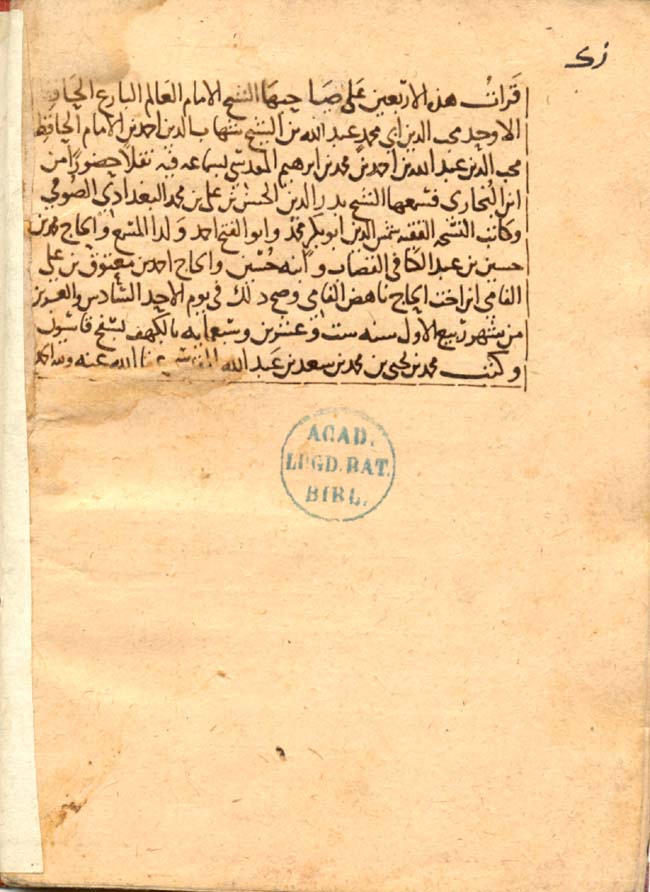 قرات هذه الاربعين على صاحبها الشيخ الامام العالم البارع الحافظ
الاوحد محب الدين ابي محمد عبد الله بن الشيخ شهاب الدين احمد بن الامام الحافظ
محب الدين عبد الله بن احمد بن محمد بن ابرهيم المقدسي بسماعه فيه نقلا حضورا من
ابن البخاري فسمعها الشيخ بدر الدين الحسن بن علي بن محمد البغدادي الصوفي
وكاتب الفقيه شمس الدين ابو بكر محمد وابو الفتح احمد ولدا المسمع والحاج محمد بن
حسين بن عبد الكافي القصاب وابنه حسين والحاج احمد بن معتوق بن علي
الفامي ابن اخت الحاج ناهض الفامي وصح ذلك في يوم الاحد السادس والعشرين
من شهور ربيع الاول سنه ست وعشرين وسبعمايه بالكهف بسفح قاسيون
وكتب محمد بن يحيى بن محمد بن سعد بن عبد الله المقدسي عفا الله عنه ولله الحمد
ACAD.
LUGD. BAT.
BIBL.